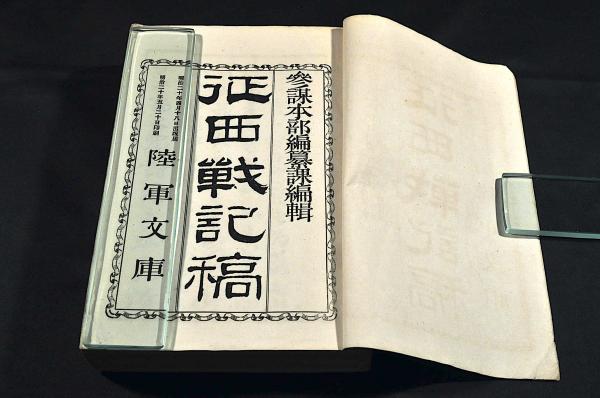 參謀本部編纂課編輯
征西戰記稿
明治二十年四月十八日出版届
明治二十年五月二十日印刷
陸軍文庫